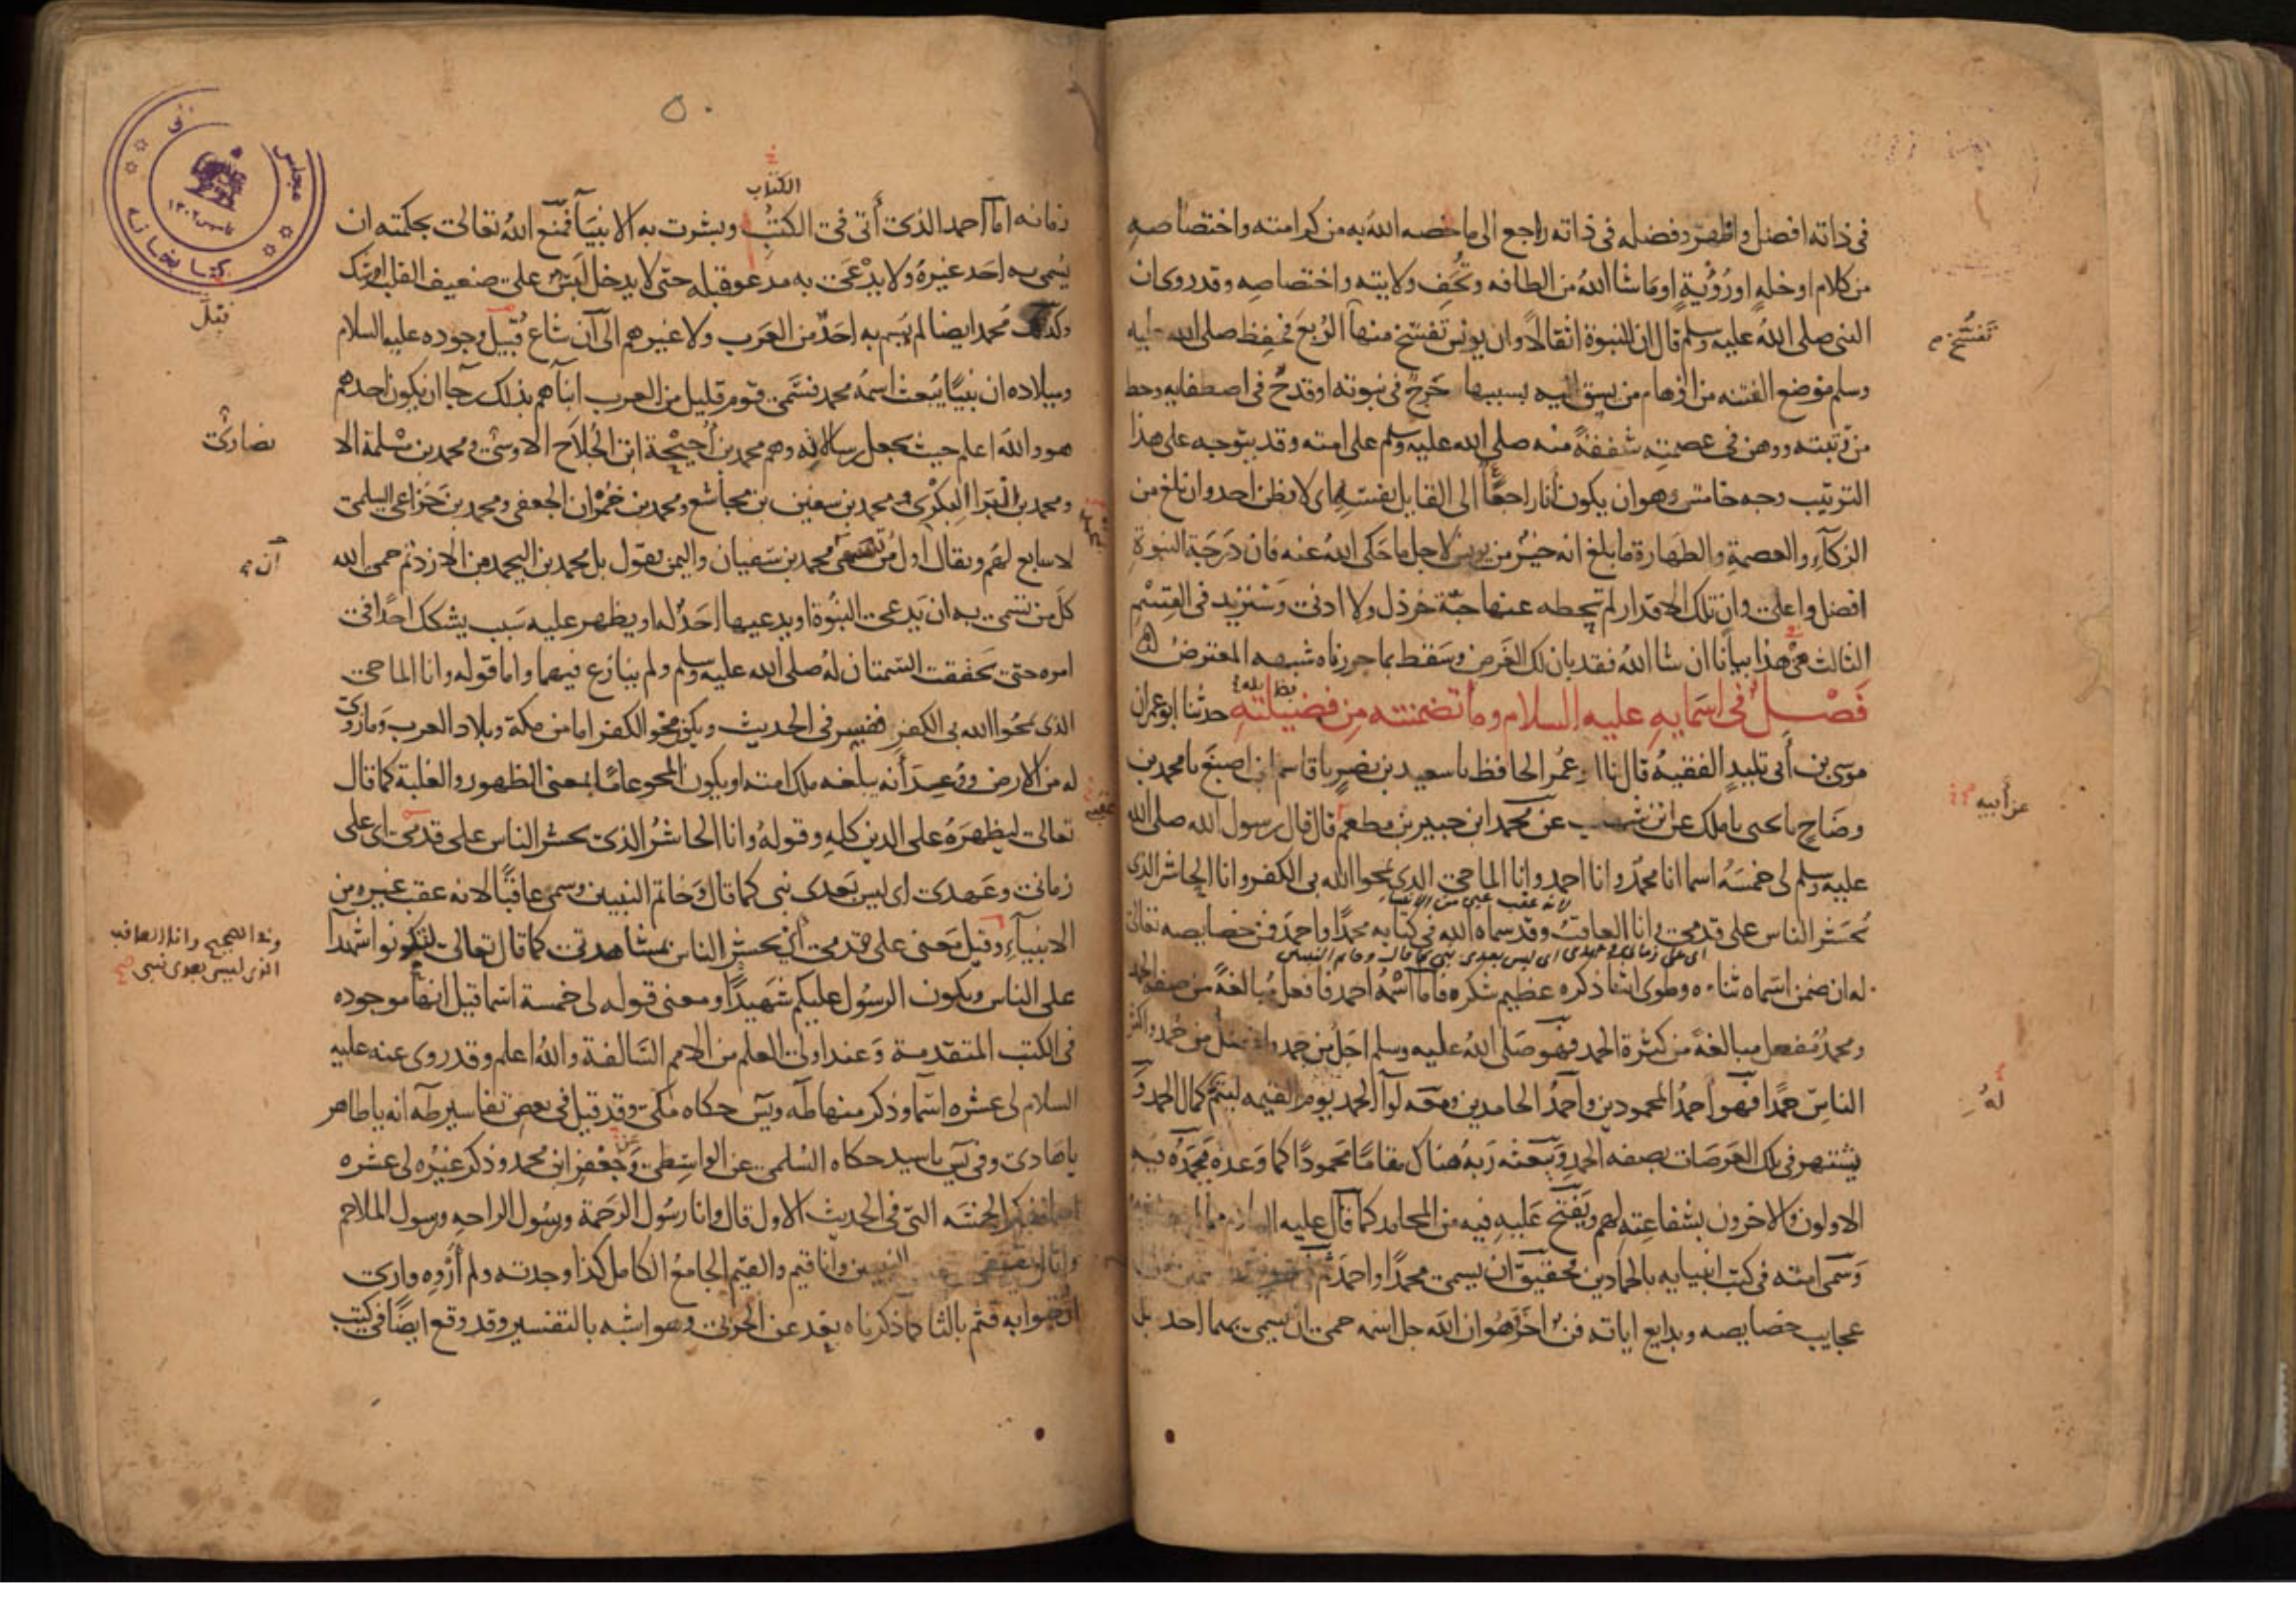 في ذاته افضل واظهر وفضله في ذاته راجع الى ما خصه الله به من كرامته واختصاصه
من كلام او خلةٍ او رُؤْيةٍ او ما شا اللهُ من الطافه وتُحَفِ ولايته واختصاصِه وقد روى ان
النبى صلى اللهُ عليه وسلم قال ان للنبوة اثقالاً وان يونس تفسّخ منها
تفسُّخ
وسلم موضع الفتنه من اوهام من يسبق اليه بسببها جَرحٌ في نبوته او قدحٌ في اصطفايه وحط
من رُتبته ووهن في عصمتِه شفقةً منه صلى الله عليه وسلم على امته وقد يتوجه على هذا
الترتيب وجه خامس وهو ان يكون أنا راجعًا الى القايل نفسَه اى لا يظن احد وان بلغ من
الزكآءِ والعصمةِ والطهارة ما بلغ انه خيرٌ من يونس لاجل ما حَكى اللهُ عنه فان دَرَجَة النبوةِ
افضل واعلى وانّ تلك الاقدار لم تحطه عنها حبّة خردل ولا ادنى وسَنزيد في القِسْمِ
الثالث في هذا بيانًا ان شا اللهُ فقد بان لك الغَرض وسَقط بما حررناه شبهه المعترض
فَصْـــلٌ في اسمايهِ عليه السلام وما تضمنته مِن فضيلتهِ حدثنا ابو عمران
موسى بن أبى تليدٍ الفقيهُ قال نا ابو عمر الحافظ نا سعيد بن نصرٍ نا قاسم ابن اصبغَ نا محمد بن
وضّاحٍ نا يحيى نا ملك عن ابن شهاب عن محمد ابن جبير بن مطعم قال قال رسول الله صلى الله
عن أبيه
عليه وسلم لى خمسَةُ اسما انا محمدٌ وانا احمد وانا الماحى الذى يمحوا الله بى الكفر وانا الحاشر الذى
لانه عقب غيره من الانبياء
يُحشر الناس على قدمى وانا العاقبُ وقد سماه الله فى كتابه محمدًا واحمدَ فمن خصايصه تعالى
اى على زمانى وعهدى اى ليس بعدى نبى كما قال وخاتم النبيين
له ان ضمن اسماه ثناءه وطوى اثنا ذكره عظيم شكره فاما اسْمُهُ احمد فافعل مُبالغةً من صفه الحمد
ومحمدٌ مُفعل مبالغةً من كثرة الحمد فهو صَلى اللهُ عليه وسلم اجلُّ من حمد وافضل من حُمد واكثر
الناسِ حَمدًا فهو احمدُ المحمودين وأحمدُ الحامدين ومعه لوآ الحمد يوم القيمه ليتمَّ كمال الحمد و
لهُ
يشتهر فى تلك العَرَصَات بصفه الحمدِ ويَبْعثه رَبهُ هناك مقامًا مَحمودًا كما وَعدهُ يَحْمَدُه فيهِ
الاولون والاخرون بشفاعتِه لهم ويَفتح عَليه فيه من المحامد كما قال عليه السلام
وَسمّى امته فى كتب انبيايه بالحمّادين فحقيقٌ ان يسمى محمدًا واحمدَ ثم
عجايب خصايصه وبدايع اياته فنٌ اخر هُو ان الله جل اسمه حمى ان يسمى بهما احد
٥٠
الكتاب
زمانه اما احمد الذى أتى فى الكتبِ وبشرت به الانبيآ فمنع اللهُ تعالى بحكمته ان
يُسمى به احَد غيرهُ ولا يدْعَى به مدعو قبله حتى لا يدخل لَبسٌ على ضعيف القلب او شك
وكذلك مُحمد ايضا لم يُسم به احَدٌ من العَرب ولا غيرهم الى آن شاع قُبيل وجوده عليه السلام
قبل
وميلاده ان نبيًّا يُبعث اسمُهُ محمد فسَمّى قوم قليل من العرب ابنآهم بذلك رجآ ان يكون احدهم
هو والله اعلم حيث يجعل رسالاته وهم محمد بن أُحَيْحَة ابن الجُلاَح الاوسىّ ومحمد بن سْلمة الا
نصارىّ
ومحمد بن البَرَا البكْرِى ومحمد بن سفين بن مجاشع ومحمد بن حُمْران الجعفى ومحمد بن خَزاعى السلمى
لا سابع لهم ويقال اول من تسمى محمد بن سَفيان واليمن تقول بل محمد بن اليحمد من الازد ثم حمى الله
آن
كلّ من تسمى به ان يَدعى النبُوة او يدعيها احَدٌ له او يظهر عليه سَبب يشكك احدًا فى
امره حتى تحققت السِّمتان لهُ صلى الله عليه وسلم ولم ينازع فيهما واما قوله وانا الماحى
الذى يمحُوا الله بى الكفر ففسِر فى الحديث ويكون محوُ الكفر اما من مكة وبلاد العرب وما زُوى
له من الارض ووُعِدَ أنه يبلغه ملك امته او يكون المحو عامًا بمعنى الظهور والغلبة كما قال
تعالى ليظهرَهُ على الدين كلِهِ وقولهُ وانا الحاشرُ الذى يحشر الناس على قدمى اى على
زمانى وعَهدى اى ليس بَعدى نبى كما قال وَخاتم النبيين وسمى عاقبًا لانه عقب غيره من
الانبيآءِ وقيل مَعنى على قدمى اى يحشر الناس بمشاهدتى كما قال تعالى لتكونوا شهدآ
وفى الصحيح وانا العاقب
الذى ليس بعدى نبى صح
على الناس ويكون الرسُول عليكم شَهيدًا ومعنى قوله لى خمسة اسما قيل انها موجوده
فى الكتب المتقدمة وَعند اولى العلم من الامم السّالفة واللهُ اعلم وقد روى عنه عليه
السلام لى عشره اسما وذكر منها طَه ويسَ حكاه مَكى وقد قيل فى بعض تفاسير طَه انه يا طاهر
يا هَادى وفى يسَ يا سيد حكاه السُلمى عن الواسِطى وَجَعْفر ابن محمد وذكر غيرُه لى عشره
اسما فذكر الخمسَه التى فى الحديث الاول قال وانا رسُول الرَحمة ورسُول الراحهِ ورسول الملاحم
وانا المقفى النبيين وانا قيم والقيم الجامعُ الكامل كذا وجدته ولم أَرْوِه وارى
ان صوابه قثم بالثا كما ذكرناه بعد عن الحربى وهو اشبه بالتفسير وقد وقع ايضًا فى كتب
مجلس
كتابخانه
تاسيس ١٣٠٢